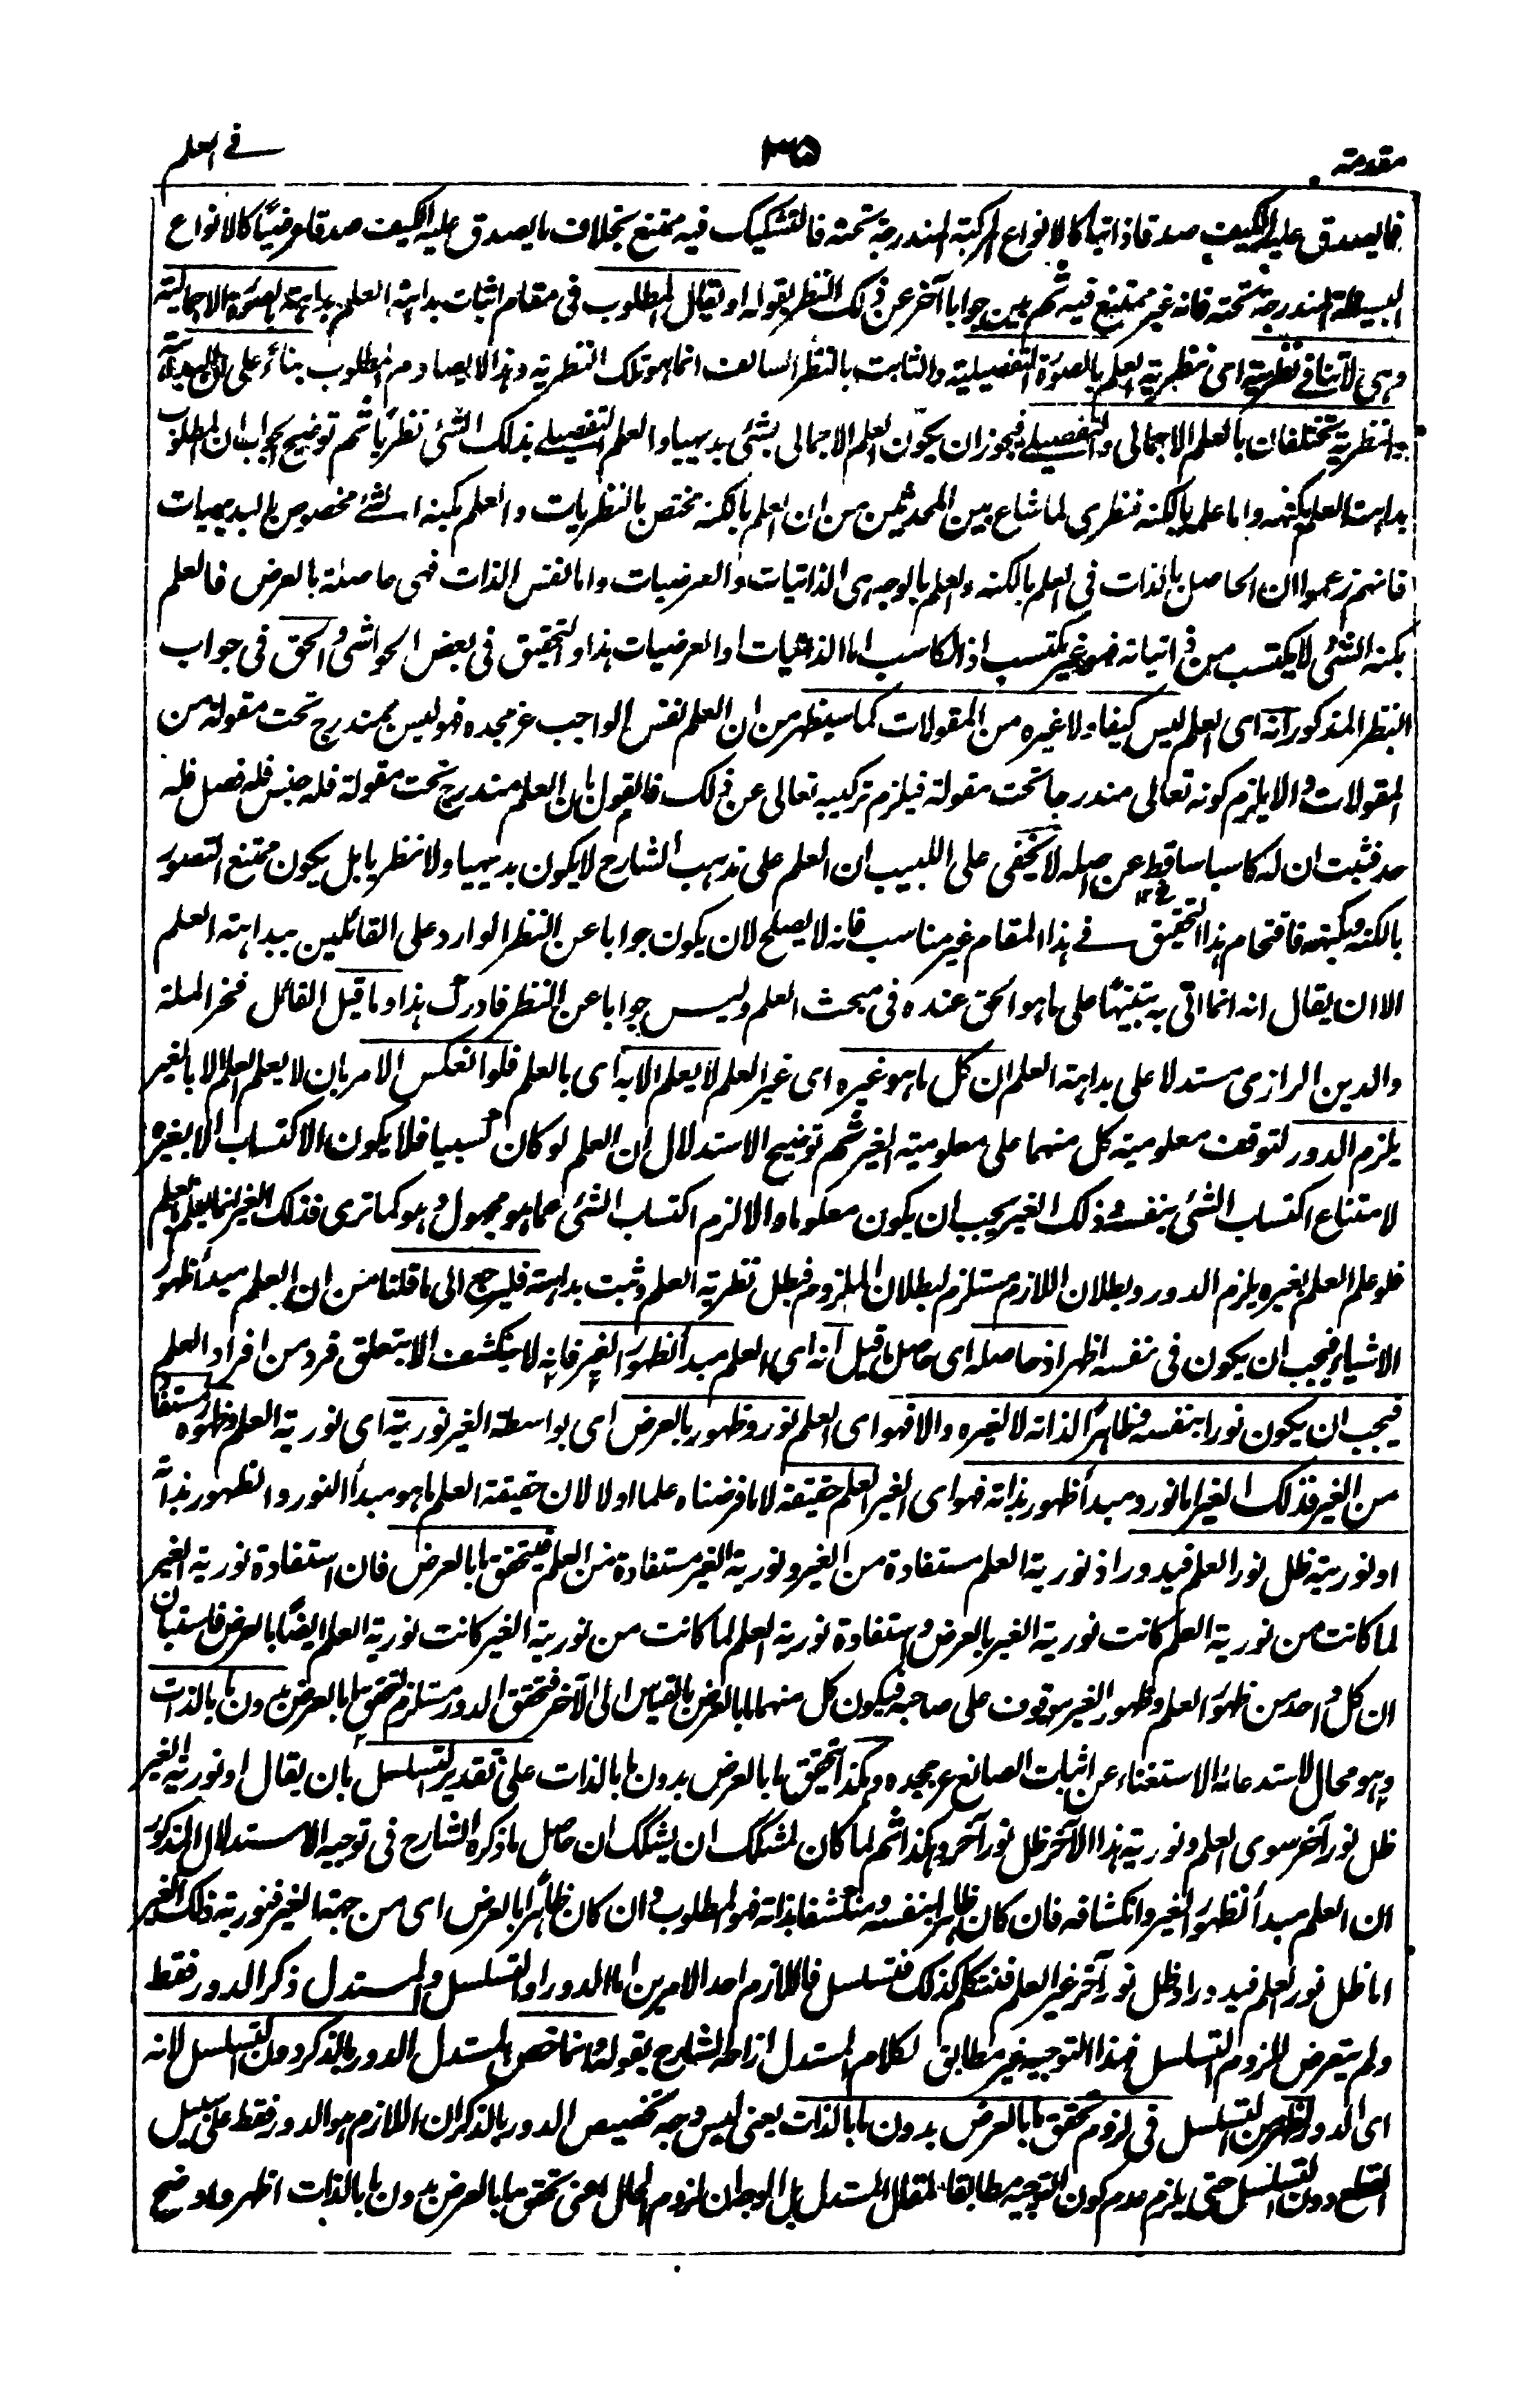 مقدمته
٣٥
في العلم
فما يصدق عليه الكيف صدقا ذاتيا كالانواع المركبة المندرجة تحته فالتشكيك فيه ممتنع بخلاف ما يصدق عليه الكيف صدقا عرضيًا كالانواع
البسيطة المندرجة تحته فانه غير ممتنع فيه ثم بين جوابا آخر عن ذلك النظر بقوله او يقال المطلوب فى مقام اثبات بداهته العلم بداهته بالصورة الاجمالية
وهى لا تنافي نظريته اى نظرية العلم بالصورة التفصيلية والثابت بالنظر السالف انما هو تلك النظرية وهذا لا يصادم المطلوب بناء على ان البداهة
والنظرية تختلفان بالعلم الاجمالى والتفصيلے فيجوز ان يكون العلم الاجمالى بشئى بديهيا والعلم التفصيلے بذلك الشئى نظريا ثم توضيح الجواب ان المطلوب
بداهت العلم بكنهه واما علمه بالكنه فنظرى لما شاع بين المحدثين من ان العلم بالكنه مختص بالنظريات والعلم بكنه الشئے مخصوص بالبديهيات
فانهم زعموا ان الحاصل بالذات فى العلم بالكنه والعلم بالوجه هى الذاتيات والعرضيات واما نفس الذات فهى حاصلة بالعرض فالعلم
بكنه الشئى لا يكتسب من ذاتياته فهو غير مكتسب اذ الكاسب اما الذاتيات او العرضيات هذا والتحقيق فى بعض الحواشى والحق فى جواب
النظر المذكور انه اى العلم ليس كيفا ولا غيره من المقولات كما سيظهر من ان العلم نفس الواجب عز مجده فهو ليس بمندرج تحت مقولة من
المقولات والا يلزم كونه تعالى مندرجا تحت مقولة فيلزم تركيبه تعالى عن ذلك فالقول بان العلم مندرج تحت مقولة فله جنس فله فصل فله
حد فثبت ان له كاسبا ساقط عن اصله لا يخفى على اللبيب ان العلم على مذهب الشارح لا يكون بديهيا ولا نظريا بل يكون ممتنع التصور
بالكنه وبكنهه فاقتحام هذا التحقيق في هذا المقام غير مناسب فانه لا يصلح لان يكون جوابا عن النظر الوارد على القائلين ببداهته العلم
الا ان يقال انه انما اتى به تنبيهًا على ما هو الحق عنده فى مبحث العلم وليس جوابا عن النظر فادرك هذا وما قيل القائل فخر الملة
والدين الرازى مستدلا على بداهته العلم ان كل ما هو غيره اى غير العلم لا يعلم الا به اى بالعلم فلو انعكس الامر بان لا يعلم العلم الا بالغير
يلزم الدور لتوقف معلومية كل منهما على معلومية الغير ثم توضيح الاستدلال ان العلم لو كان كسبيا فلا يكون الاكتساب الا بغيره
لامتناع اكتساب الشئى بنفسه وذلك الغير يجب ان يكون معلوما والا لزم اكتساب الشئى مما هو مجهول وهو كما ترى فذلك الغير انما يعلم بالعلم
فلو علم العلم بغيره يلزم الدور وبطلان اللازم مستلزم لبطلان الملزوم فبطل نظرية العلم وثبت بداهته فليرجع الى ما قلنا من ان العلم مبدأ ظهور
الاشياء فيجب ان يكون فى نفسه اظهر اذ حاصله اى حاصل ما قيل انه اى العلم مبدأ لظهور الغير فانه لا ينكشف الا بتعلق فرد من افراد العلم
فيجب ان يكون نورا بنفسه وظاهرًا لذاته لا لغيره والا فهو اى العلم نور وظهور بالعرض اى بواسطة الغير نوريته اى نورية العلم وظهوره مستفاد
من الغير فذلك الغير اما نور ومبدأ ظهور بذاته فهو اى الغير العلم حقيقة لا ما فرضناه علما اولا لان حقيقة العلم ما هو مبدأ النور والظهور بذاته
او نوريته ظل نور العلم فيدور اذ نورية العلم مستفادة من الغير ونورية الغير مستفادة من العلم فيتحقق ما بالعرض فان استفادة نورية الغير
لما كانت من نورية العلم كانت نورية الغير بالعرض واستفادة نورية العلم لما كانت من نورية الغير كانت نورية العلم ايضًا بالعرض فاستبان
ان كل واحد من ظهور العلم وظهور الغير موقوف على صاحبه فيكون كل منهما ما بالعرض بالقياس الى الآخر فتحقق الدور مستلزم لتحقق ما بالعرض بدون ما بالذات
وهو محال لاستدعائه الاستغناء عن اثبات الصانع عز مجده وهكذا تحقق ما بالعرض بدون ما بالذات على تقدير التسلسل بان يقال او نورية الغير
ظل نور آخر سوى العلم ونورية هذا الآخر ظل نور آخر وهكذا ثم لما كان لمشكك ان يشكك ان حاصل ما ذكره الشارح فى توجيه الاستدلال المذكور
ان العلم مبدأ لظهور الغير وانكشافه فان كان ظاهرًا بنفسه ومنكشفا بذاته فهو المطلوب وان كان ظاهرًا بالعرض اى من جهة الغير فنورية ذلك الغير
اما ظل نور العلم فيدور او ظل نور آخر غير العلم فنتكلم كذلك فتسلسل فاللازم احد الامرين اما الدور او التسلسل والمستدل ذكر الدور فقط
ولم يتعرض للزوم التسلسل فهذا التوجيه غير مطابق لكلام المستدل ازاحه الشارح بقوله وانما خص المستدل الدور بالذكر دون التسلسل لانه
اى الدور اظهر من التسلسل فى لزوم تحقق ما بالعرض بدون ما بالذات يعنى ليس وجه تخصيص الدور بالذكر ان اللازم هو الدور فقط على سبيل
القطع دون التسلسل حتى يلزم عدم كون التوجيه مطابقا لمقال المستدل بل الوجه ان لزوم المحال اعنى تحقق ما بالعرض بدون ما بالذات اظهر واوضح